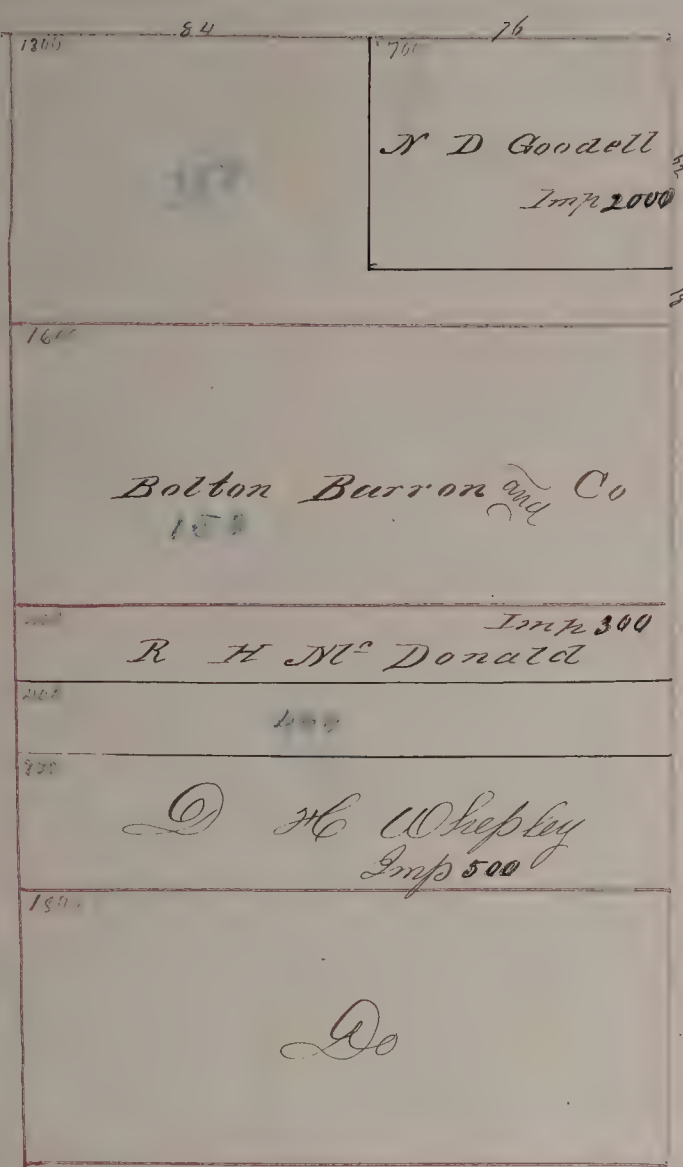 84 76
1300 700
N D Goodell
Imp 2000
Bolton Barron and Co
Imp 300
R H Mc Donald
D H Whepley
Imp 500
Do